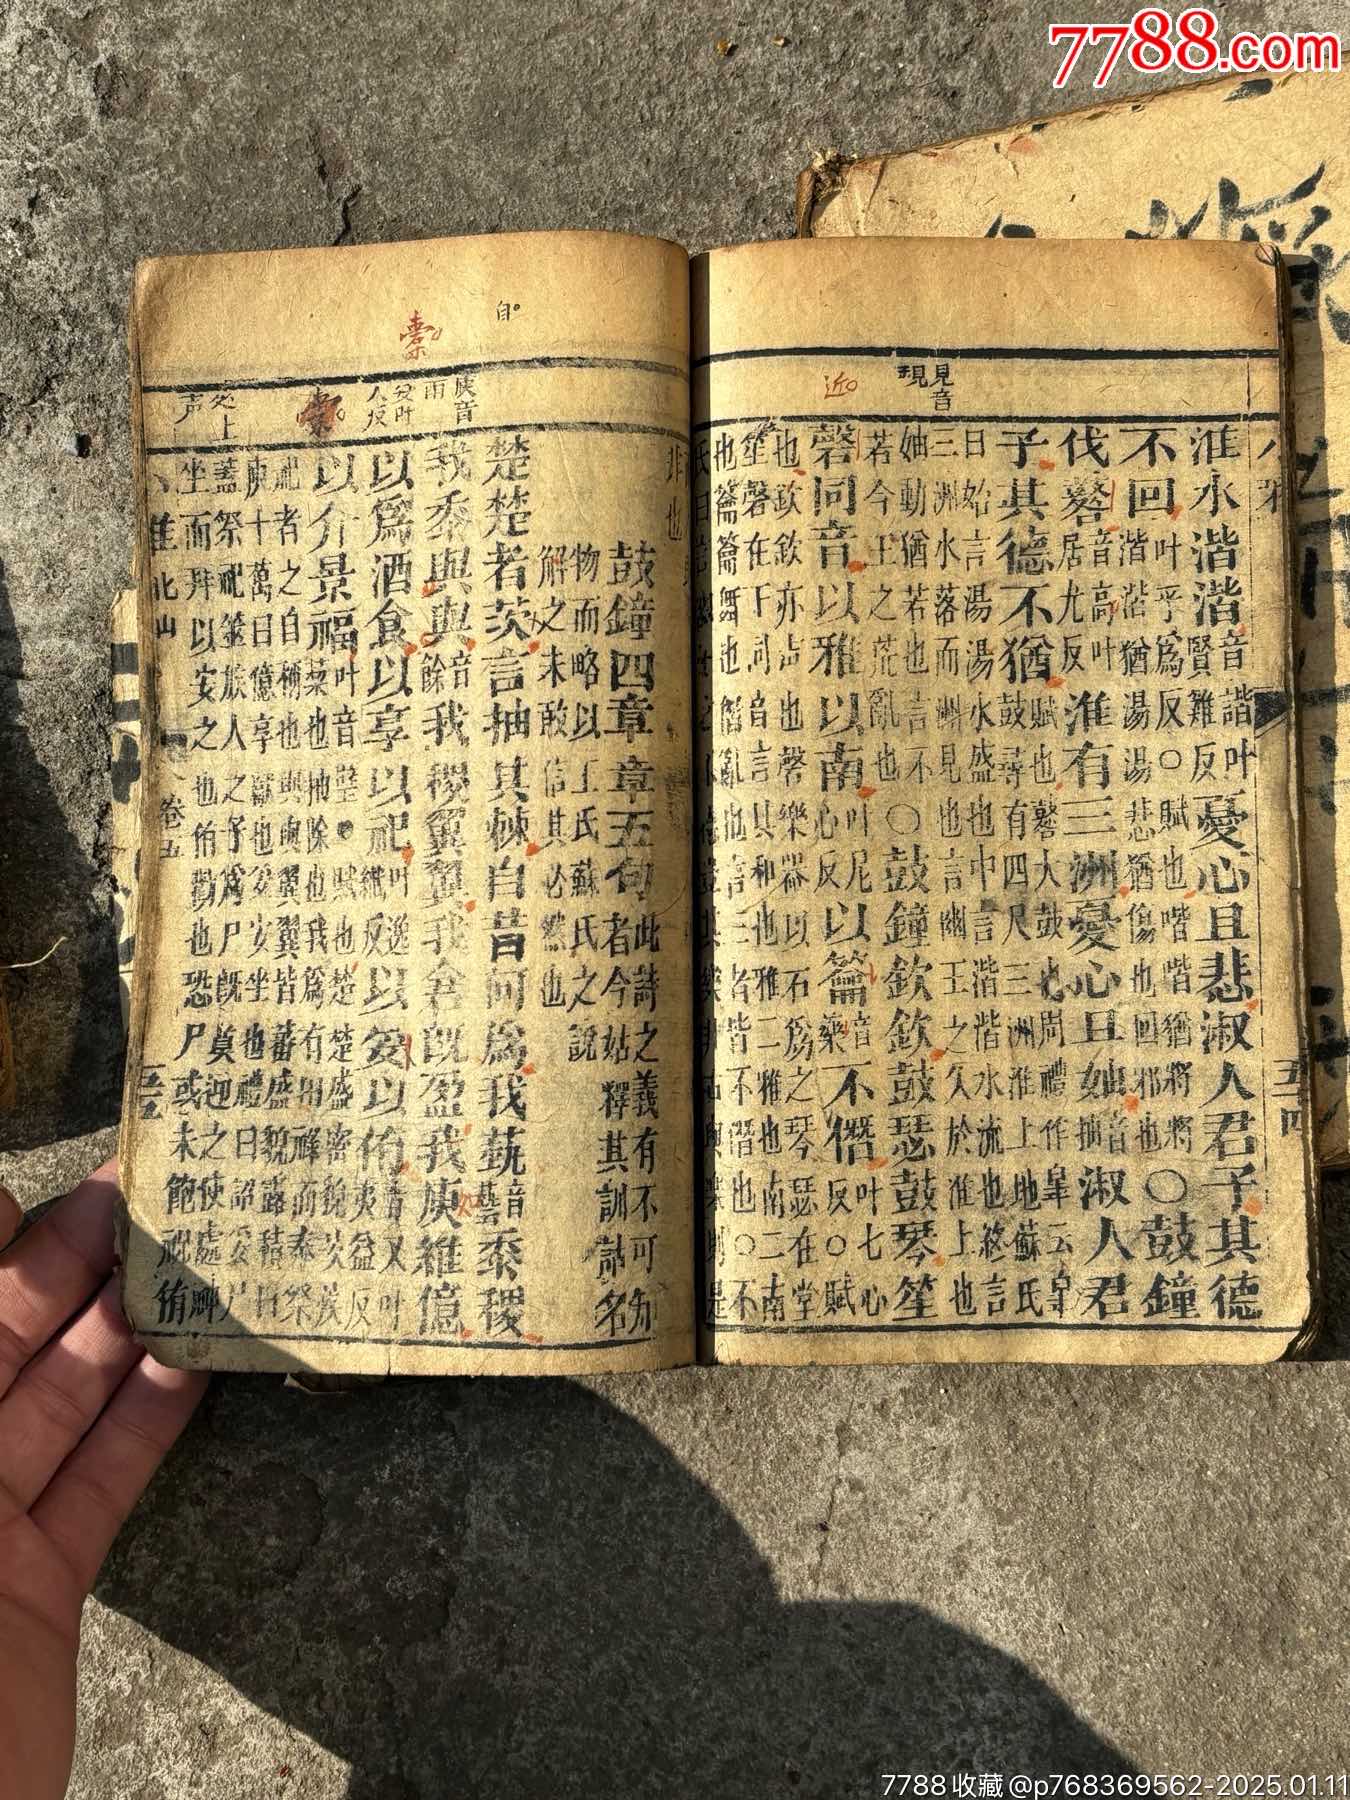 7788.com
見音
現
近
淮水湝湝
音諧叶
賢雞反
憂心且悲淑人君子其德
不回
叶乎為反○賦也喈喈猶將將
湝湝猶湯湯悲猶傷也回邪也
○鼓鐘
伐鼛
音高叶
居尤反
淮有三洲憂心且妯
音
抽
淑人君
子其德不猶
賦也鼛大鼓也周禮作皋云皋
鼓尋有四尺三洲淮上地蘇氏
曰始言湯湯水盛也中言湝湝水流也終言
三洲水落而洲見也言幽王之久於淮上也
妯動猶若也言不
若今王之荒亂也
○鼓鐘欽欽鼓瑟鼓琴笙
磬同音以雅以南
叶尼
心反
以籥
音
藥
不僭
叶七心
反○賦
也欽欽亦声也磬樂器以石為之琴瑟在堂
笙磬在下同音言其和也雅二雅也南二南
也籥籥舞也僭亂也言三者皆不僭也○
五十四
自
庾音
雨
妥叶
人反
処上
声
非也
鼓鐘四章章五句
此詩之義有不可知
者今姑釋其訓詁名
物而略以王氏蘇氏之說
解之未敢信其必然也
楚楚者茨言抽其棘自昔何為我蓺
音
藝
黍稷
我黍與與
音
餘
我稷翼翼我倉既盈我庾維億
以為酒食以享以祀
叶逸
織反
以妥以侑
音又叶
夷益反
以介景福
叶音璧●賦也楚楚盛密貌茨蒺
藜也抽除也我為有田祿而奉祭
祀者之自稱也與與翼翼皆蕃盛貌露積曰
庾十萬曰億享獻也妥安坐也禮曰詔妥尸
蓋祭祀筮族人之子為尸既奠迎之使處神
坐而拜以安之也侑勸也恐尸或未飽祝侑
小雅北山
卷五
五十五
7788收藏@p768369562-2025.01.11